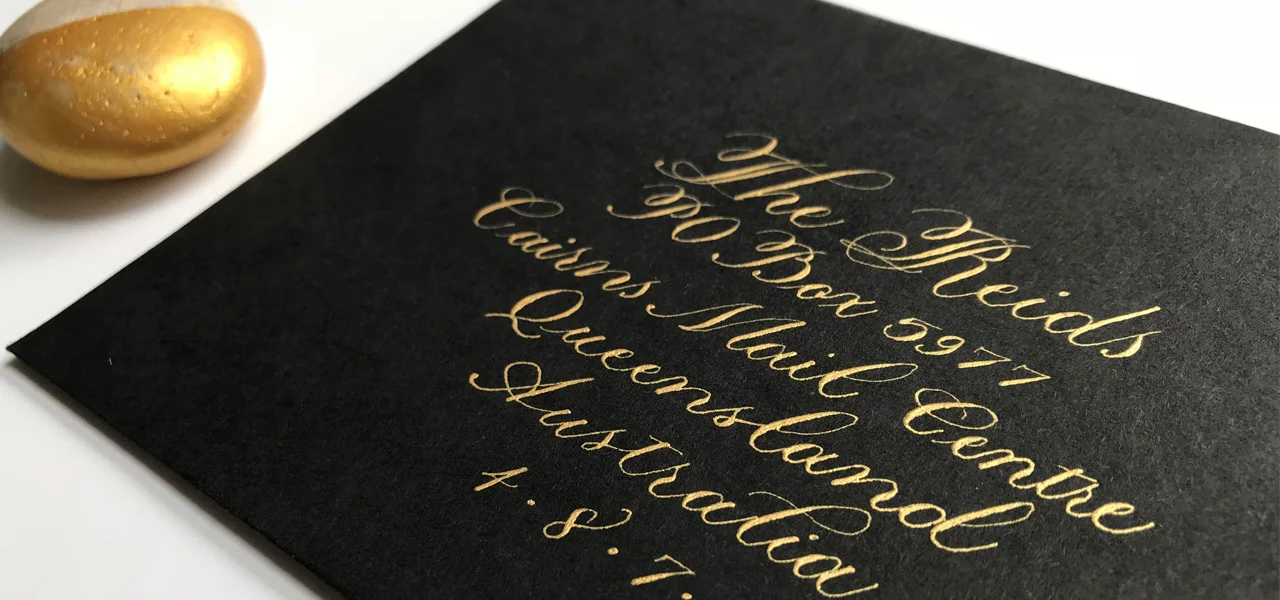 The Reids
PO Box 5977
Cairns Mail Centre
Queensland
Australia
4.8.7.